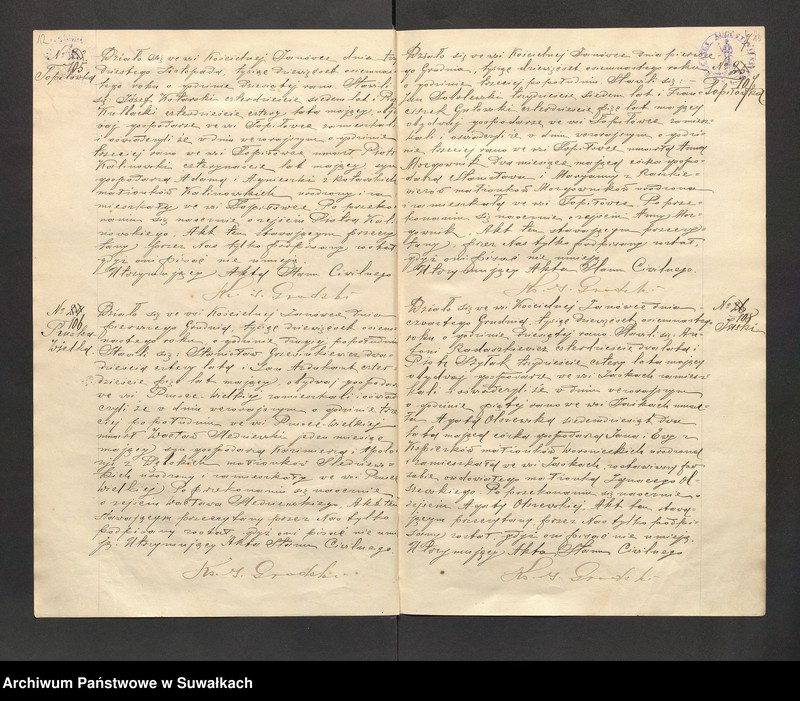 12
105
Topiłówka
Działo się we wsi Kościelnej Janówce, dnia trzy-
dziestego Listopada, tysiąc dziewięćset osiemna-
stego roku o godzinie dziewiątej rano. Stawili
się: Józef Kotarski czterdzieści siedem lat i
czterdzieści cztery lata mający, oby-
dwaj gospodarze we wsi Topiłówce zamieszkali
i oświadczyli, że w dniu wczorajszym o godzinie
trzeciej rano we wsi Topiłówce umarł Piotr
Kalinowski czternaście lat mający, syn
gospodarza Adama i Agnieszki z Kotarskich
małżonków Kalinowskich urodzony i za-
mieszkały we wsi Topiłówce. Po przeko-
naniu się naocznie o zejściu Piotra Kali-
nowskiego. Akt ten stawającym przeczy-
tany przez Nas tylko podpisany został
gdyż oni pisać nie umieją.
Utrzymujący Akta Stanu Cywilnego
Ks. J. Grodzki
106
Pruska
Wielka
Działo się we wsi Kościelnej Janówce, dnia
pierwszego Grudnia, tysiąc dziewięćset osiem-
nastego roku, o godzinie drugiej popołudniu
Stawili się: Stanisław dwa-
dzieścia cztery lata i Jan czter-
dzieście pięć lat mający, obydwaj gospodarze
we wsi Prusce Wielkiej zamieszkali i oświad-
czyli, że w dniu wczorajszym o godzinie trze-
ciej popołudniu we wsi Prusce-Wielkiej
umarł Wacław Śledziewski jeden miesiąc
mający syn gospodarza Kazimierza i Apolo-
nji z małżonków Śledziews-
kich urodzony i zamieszkały we wsi Prusce
Wielkiej. Po przekonaniu się naocznie
o zejściu Wacława Śledziewskiego. Akt ten
stawającym przeczytany przez Nas tylko
podpisany został, gdyż oni pisać nie umie-
ją. Utrzymujący Akta Stanu Cywilnego.
Ks. J. Grodzki
107
Topiłówka
Działo się we wsi Kościelnej Janówce dnia pierwsze-
go Grudnia, tysiąc dziewięćset osiemnastego roku
o godzinie trzeciej popołudniu Stawili się:
trzydzieście siedem lat i Fran-
ciszek czterdzieście pięć lat mający
obydwaj gospodarze we wsi Topiłówce zamiesz-
kali i oświadczyli, że w dniu wczorajszym o godzi-
nie trzeciej rano we wsi Topiłówce umarła Anna
Mozgownik dwa miesiące mająca córka gospo-
darza Stanisława i Maryanny z
małżonków Mozgowników urodzona
i zamieszkała we wsi Topiłówce. Po prze-
konaniu się naocznie o zejściu Anny Moz-
gownik. Akt ten stawającym przeczy-
tany, przez Nas tylko podpisany został,
gdyż oni pisać nie umieją.
Utrzymujący Akta Stanu Cywilnego.
Ks. J. Grodzki
108
Jaśki
Działo się we wsi Kościelnej Janówce dnia
czwartego Grudnia, tysiąc dziewięćset osiemnastego
roku o godzinie dziesiątej rano Stawili się: An-
toni czterdzieście dwa lata i
Piotr Szyłak trzydzieście cztery lata mający
obydwaj gospodarze we wsi Jaśkach zamiesz-
kali i oświadczyli, że w dniu wczorajszym
o godzinie piątej rano we wsi Jaśkach umar-
ła Agata Olszewska siedemdziesiąt dwa
lata mająca córka gospodarza Jana i Ewy z
małżonków urodzona
i zamieszkała we wsi Jaśkach, zostawiwszy po
sobie owdowiałego małżonka Ignacego Ol-
szewskiego. Po przekonaniu się naocznie o
zejściu Agaty Olszewskiej Akt ten stawa-
jącym przeczytany przez Nas tylko podpi-
sany został, gdyż oni pisać nie umieją.
Utrzymujący Akta Stanu Cywilnego
Ks. J. Grodzki
Archiwum Państwowe w Suwałkach